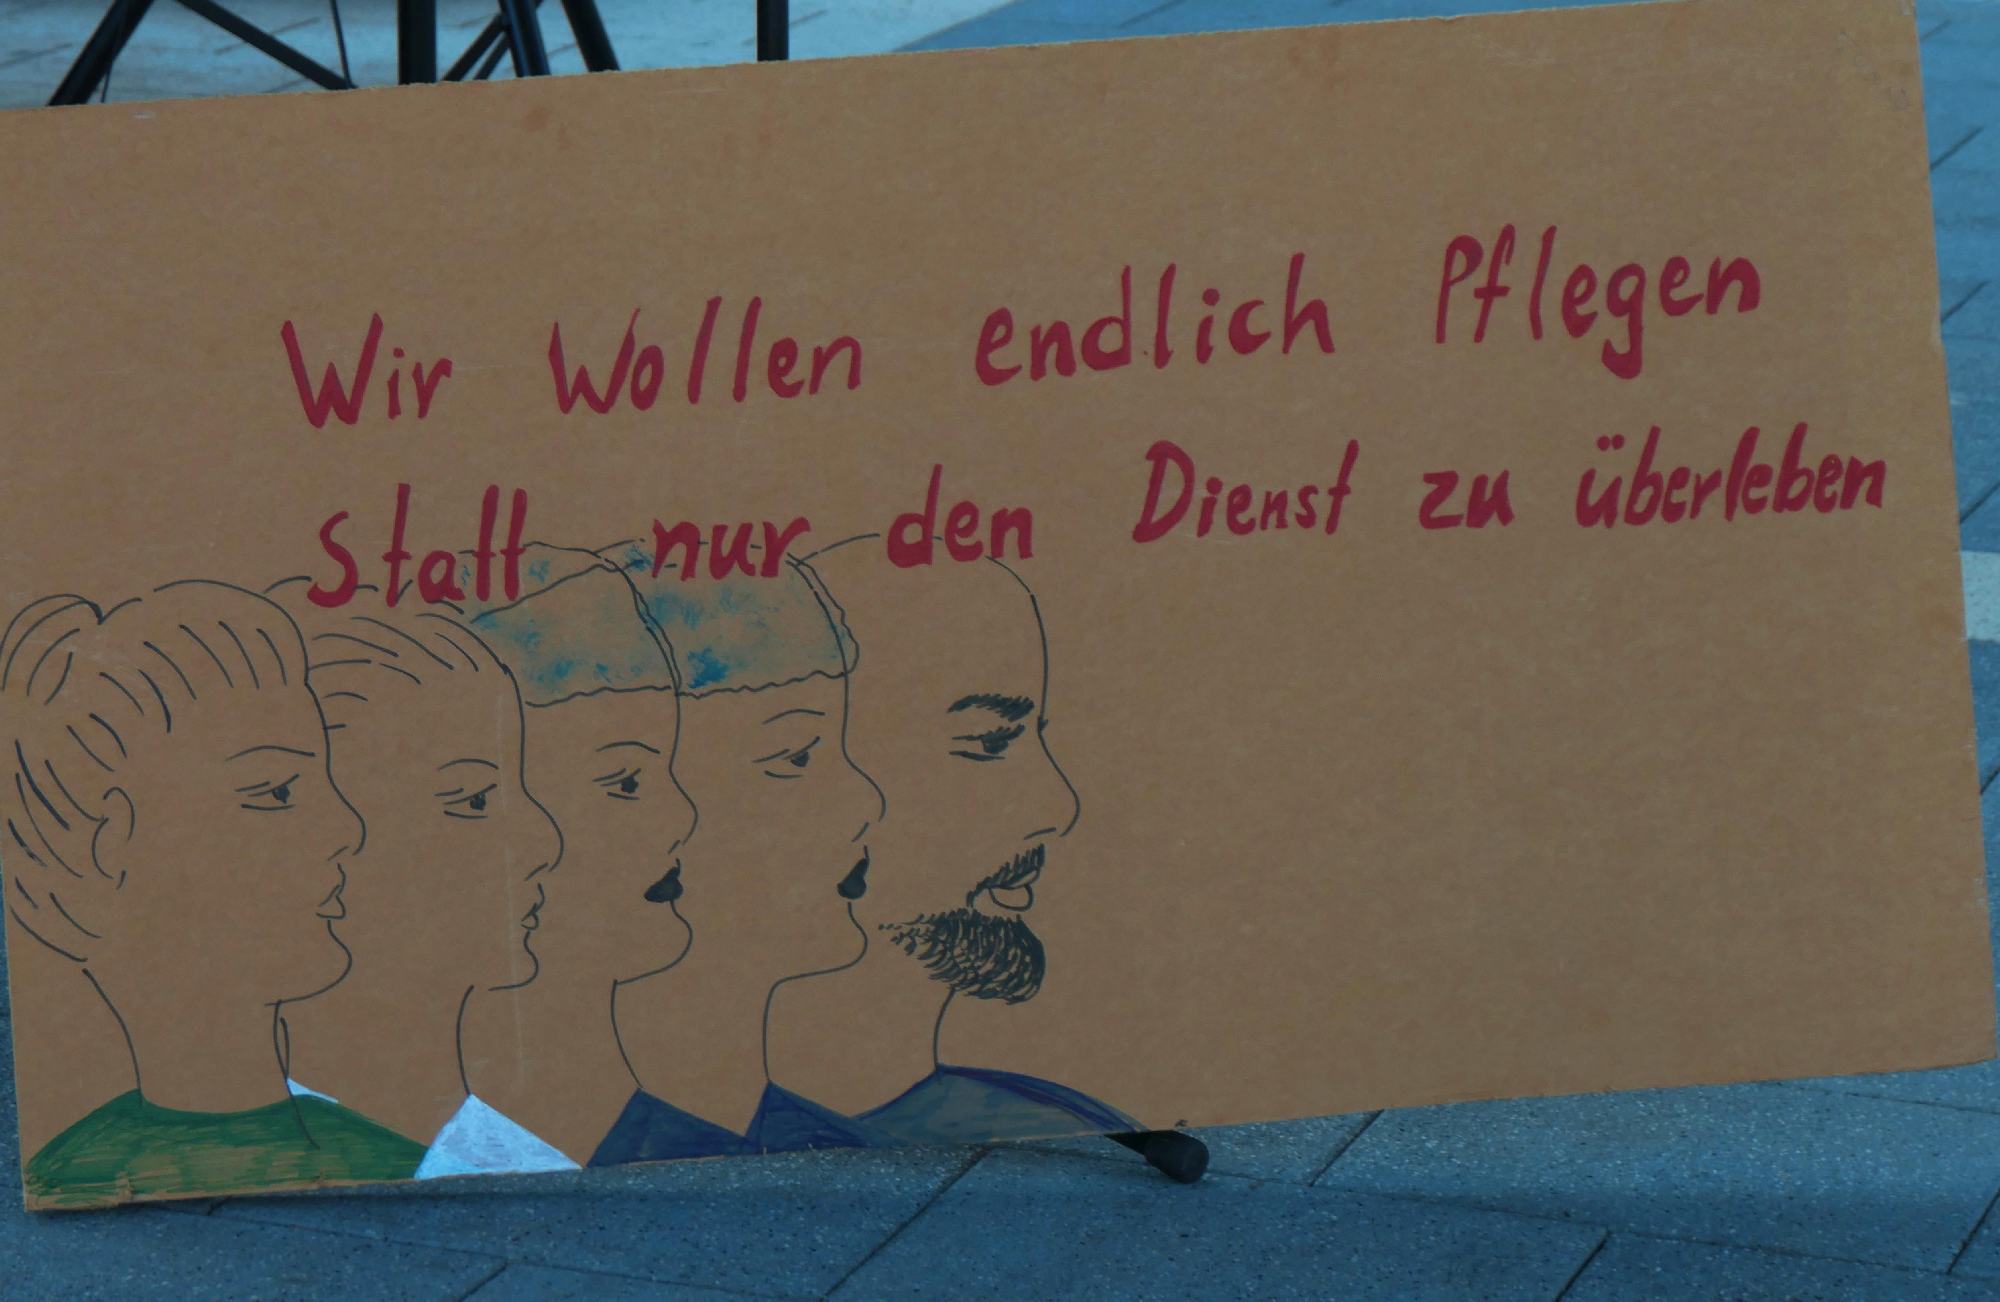 Wir Wollen endlich Pflegen
Statt nur den Dienst zu überleben